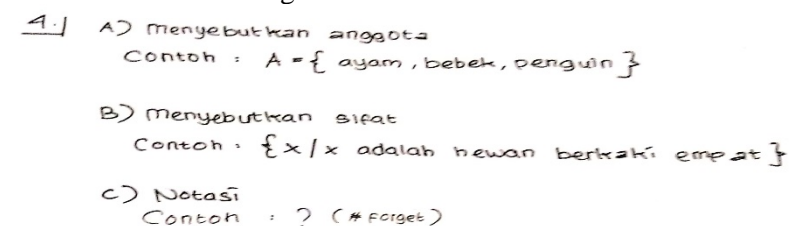 4.| A) menyebutkan anggota
Contoh : A = { ayam, bebek, penguin }
B) menyebutkan sifat
Contoh : {x/x adalah hewan berkaki empat }
C) Notasi
Contoh : ? (# forget)